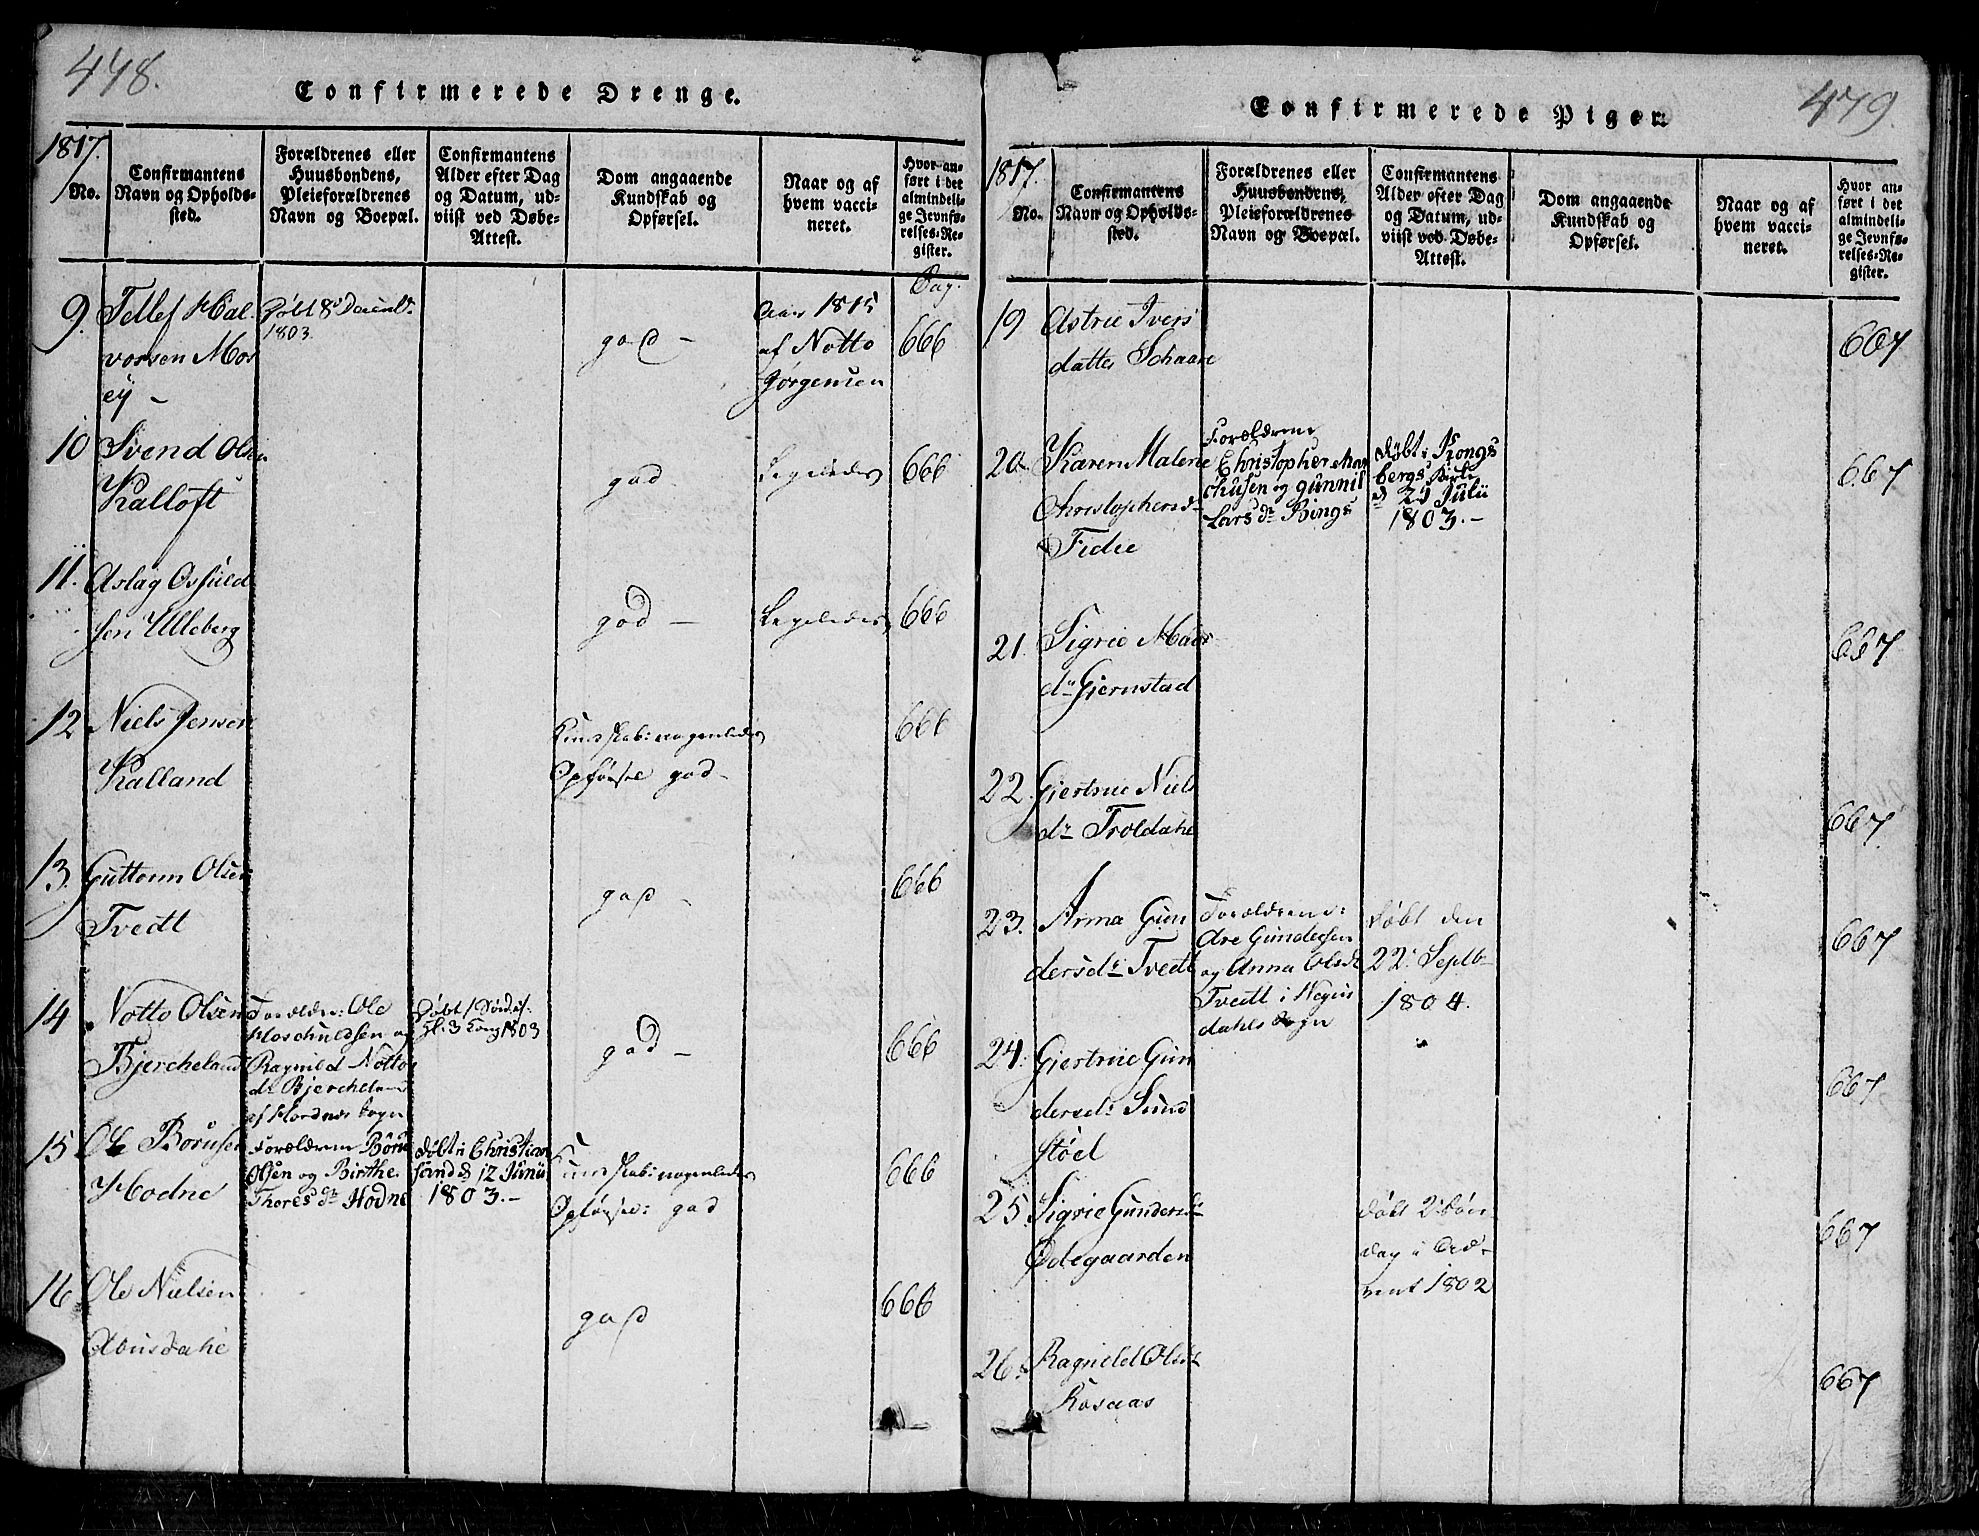 478.
Confirmerede Drenge.
1817.
No.
Confirmantens
Navn og Opholds-
sted.
Forældrenes eller
Huusbondens,
Pleieforældrenes
Navn og Boepæl.
Confirmantens
Alder efter Dag
og Datum, ud-
viist ved Døbe-
Attest.
Dom angaaende
Kundskab og
Opførsel.
Naar og af
hvem vacci-
neret.
Hvor an-
ført i det
almindeli-
ge Jevnfø-
relses-Re-
gister.
Pag.
9.
Tellef Hal-
vorsen Mos
ey -
1803.
god -
Aar 1815
af Notto
Jørgensen
666
10
Svend Olsen
Kalloft
god
Ligeledes
666
11.
Aslag Osfuld
sen Ulleberg
god -
Ligeledes
666
12
Niels Jensen
Kalland
Kundskab: nogenledes
Opførsel god -
666
13.
Guttorm Olsen
Tvedt
god -
666
14
Notto Olsen
Bjercheland
Forældre: Ole
Hoschuldsen og
Ragnild Notto
dr Bjercheland
af Hordnes Sogn
god -
666
15
Ole Børusen
Hodne
Forældrene Børu
Olsen og Birthe
Thores dr Hodne
døbt i Christian
sand d 12 Junii
1803. -
Kundskab: nogenledes
Opførsel: god
666
16
Ole Nielsen
god
666
479.
Confirmerede Piger.
1817.
No.
Confirmantens
Navn og Opholds-
sted.
Forældrenes eller
Huusbondens,
Pleieforældrenes
Navn og Boepæl.
Confirmantens
Alder efter Dag
og Datum, ud-
viist ved Døbe-
Attest.
Dom angaaende
Kundskab og
Opførsel.
Naar og af
hvem vacci-
neret.
Hvor an-
ført i det
almindeli-
ge Jevnfø-
relses-Re-
gister.
19
Astrie Ivers
datter Schaare
667
20.
Karen Malene
Christophersd-
Fidie
Forældrene
Christopher Mar
chusen og Gunnil
Lars dr Rings
døbt i Kongs
bergs Kirke
d 21 Julii
1803. -
667
21.
Sigrie
dr Gjernstad
667
22.
Giertrue Niels
dr Troldahe
667
23.
Anna Gun
dersdr Tvedt
Forældrene:
Gundersen
og Anna Olsdr
Tvedt i
dahls Sogn
døbt den
22: Septb-
1804.
667
24.
Giertrue Gun
dersdr Sund
støel
667
25.
Sigrie Gundersdr
Ødegaarden
døbt 2: Søn-
dag i Ad-
vent 1802
667
26.
Ragnild Olsdr
Rosaas
667